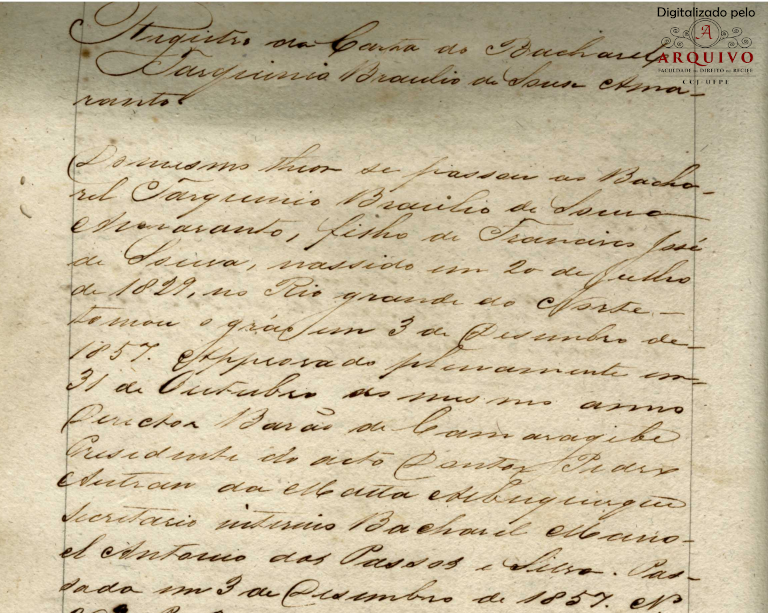 Digitalizado pelo
ARQUIVO
FACULDADE DE DIREITO DO RECIFE
CCJ-UFPE
Registro da Carta do Bacharel
Tarquinio Braulio de Sousa Ama-
ranto
Do mesmo theor se passou ao Bacha-
rel Tarquinio Braulio de Sousa
Amaranto, filho de Francisco José
de Sousa, nassido em 20 de Julho
de 1829, no Rio grande do Norte
tomou o gráo em 3 de Desembro de
1857. Approvado plenamente em
31 de Outubro do mesmo anno
Director Barão de Camaragibe
Presidente do acto Doutor Pedro
Autran da Matta Albuquerque
Secretario interino Bacharel Mano-
el Antonio dos Passos e Silva. Pas-
sada em 3 de Desembro de 1857. N